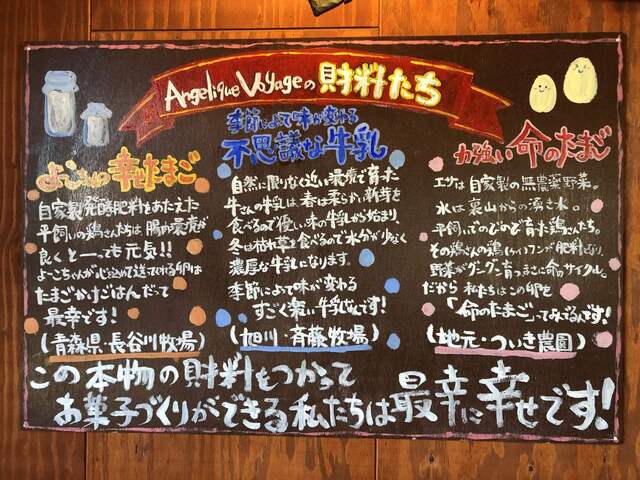 Angelique Voyageの財料たち
よこちゃんの幸せたまご
自家製発酵肥料をあたえた
平飼いの鶏さんたちは、腸内環境が
良くと一っても元気!!
よこちゃんが心を込めて送されるれる卵は
たまごかけごはんだって
最幸です!
(青森県・長谷川牧場)
季節によって味が変わる
不思議な牛乳
自然に限りなく近い環境で育った
牛さんの牛乳は、春は柔らかい新芽を
食べるので優しい味の牛乳から始まり、
冬は枯れ草を食べるので水分が少なく
濃厚な牛乳になります。
季節によって味が変わる
すごく楽しい牛乳なんです!
(旭川・斉藤牧場)
力強い命のたまご
エサは自家製の無農薬野菜。
水は裏山からの湧き水。
平飼いでのびのび育つ鶏さんたち。
その鶏さんの鶏(ケイ)フンが肥料となり、
野菜がグングン育つまさに命のサイクル。
だから私たちはこの卵を
「命のたまご」ってよんでるんです!
(地元・ついき農園)
この本物の財料をつかって
お菓子づくりができる私たちは最幸に幸せです!